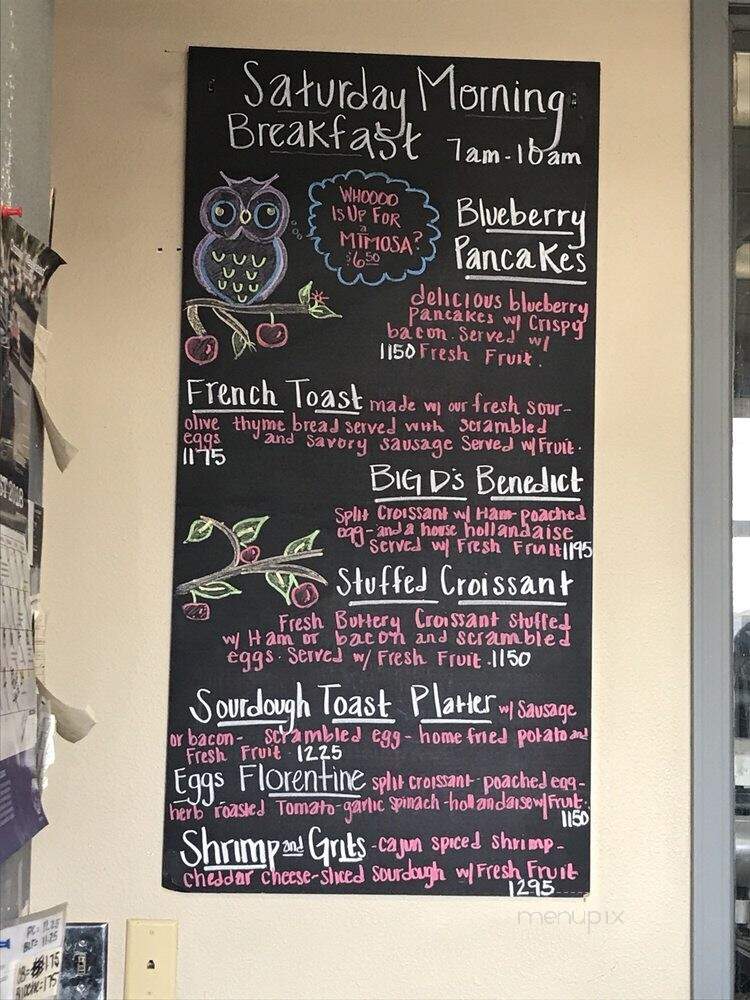 Saturday Morning
Breakfast 7am-10am
WHOOOO
IS UP FOR
a
MIMOSA?
$6.50
Blueberry
Pancakes
delicious blueberry
pancakes w/ Crispy
bacon. Served w/
1150 Fresh Fruit.
French Toast made w/ our fresh sour-
olive thyme bread served with scrambled
eggs and savory sausage Served w/ Fruit.
1175
BIG D's Benedict
Split Croissant w/ Ham-poached
egg-and a house hollandaise
served w/ Fresh Fruit 1195
Stuffed Croissant
Fresh Buttery Croissant stuffed
w/ Ham or bacon and scrambled
eggs. Served w/ Fresh Fruit. 1150
Sourdough Toast Platter w/ Sausage
or bacon- scrambled egg-home fried potato and
Fresh Fruit. 1225
Eggs Florentine split croissant-poached egg-
herb roasted Tomato-garlic spinach-hollandaise w/ Fruit.
1150
Shrimp and Grits -cajun spiced shrimp-
cheddar cheese-sliced sourdough w/ Fresh Fruit
1295
menupix